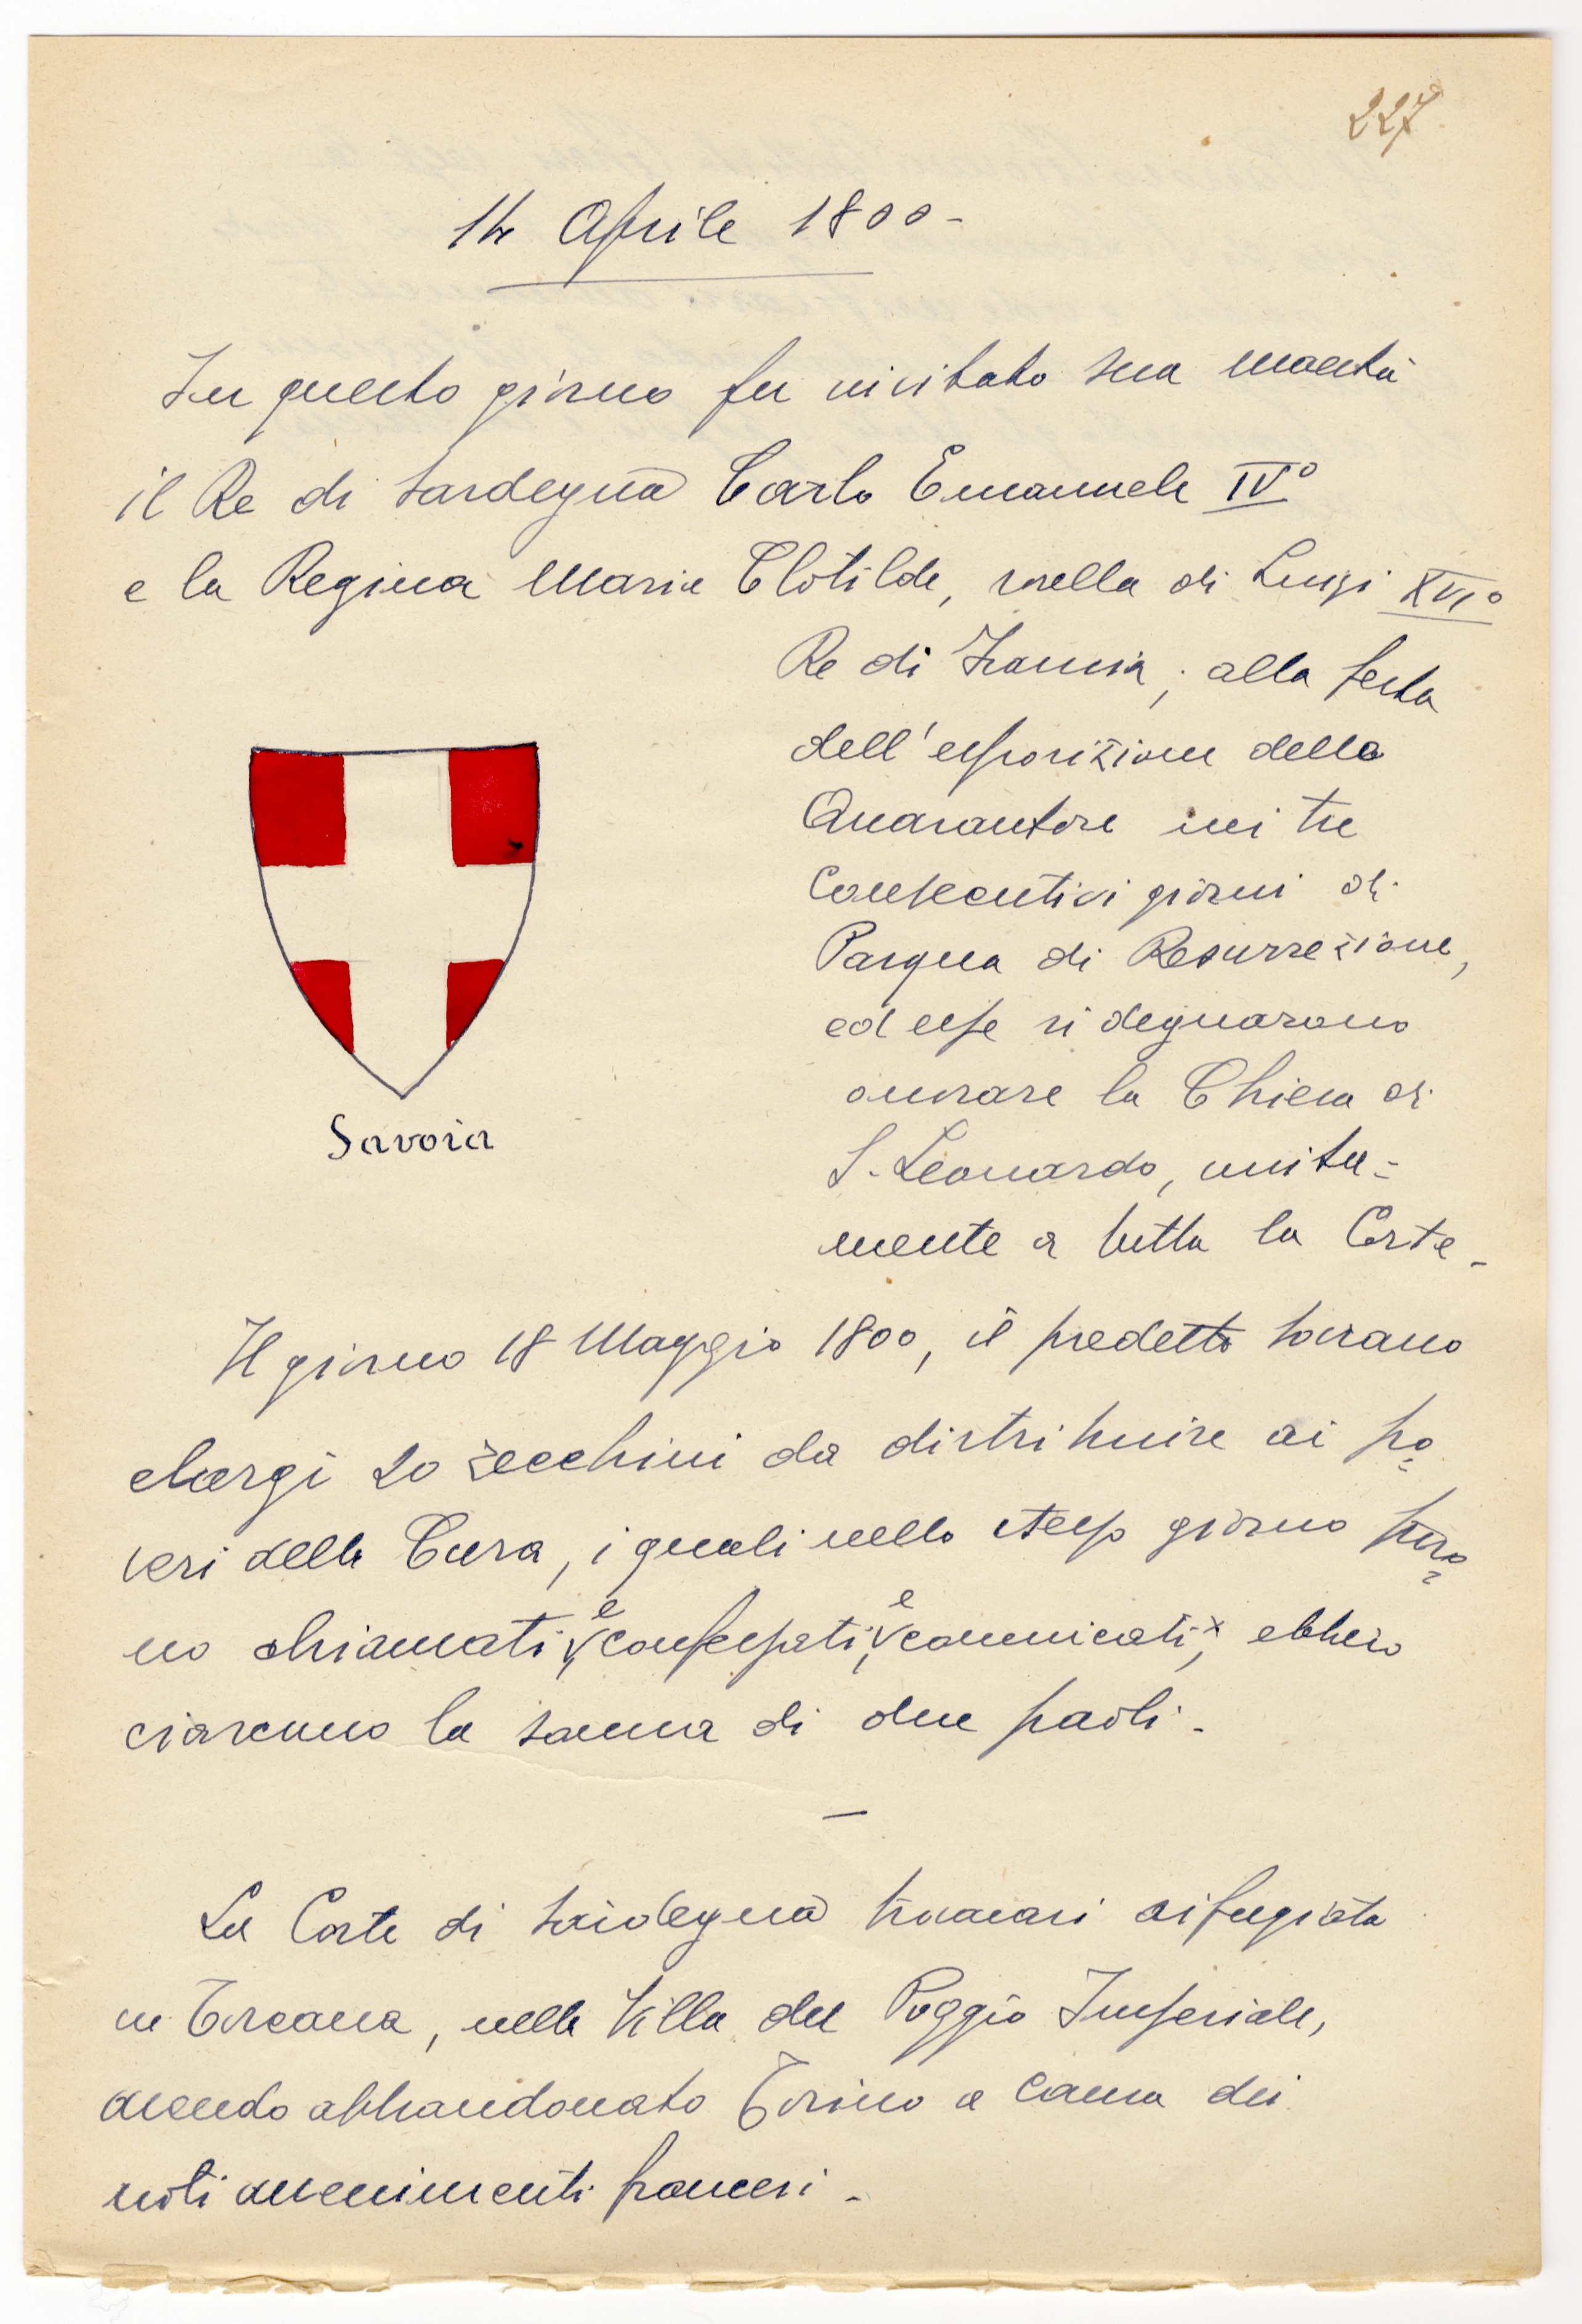 227
14 Aprile 1800-
In questo giorno fu invitato sua maestà
il Re di Sardegna Carlo Emanuele IV°
e la Regina Maria Clotilde, sorella di Luigi XVI°
Re di Francia, alla festa
dell'esposizione delle
Quarantore nei tre
consecutivi giorni di
Pasqua di Resurrezione,
ed esse si degnarono
onorare la Chiesa di
S. Leonardo, unita=
mente a tutta la Corte.
Savoia
Il giorno 18 Maggio 1800, il predetto sovrano
elargì 20 zecchini da distribuire ai po=
veri della Cura, i quali nello stesso giorno furo=
no chiamati, e confessati, e comunicati, ebbero
ciascuno la somma di due paoli.
La Corte di Sardegna trovavasi rifugiata
in Toscana, nella Villa del Poggio Imperiale,
avendo abbandonato Torino a causa dei
noti avvenimenti francesi.